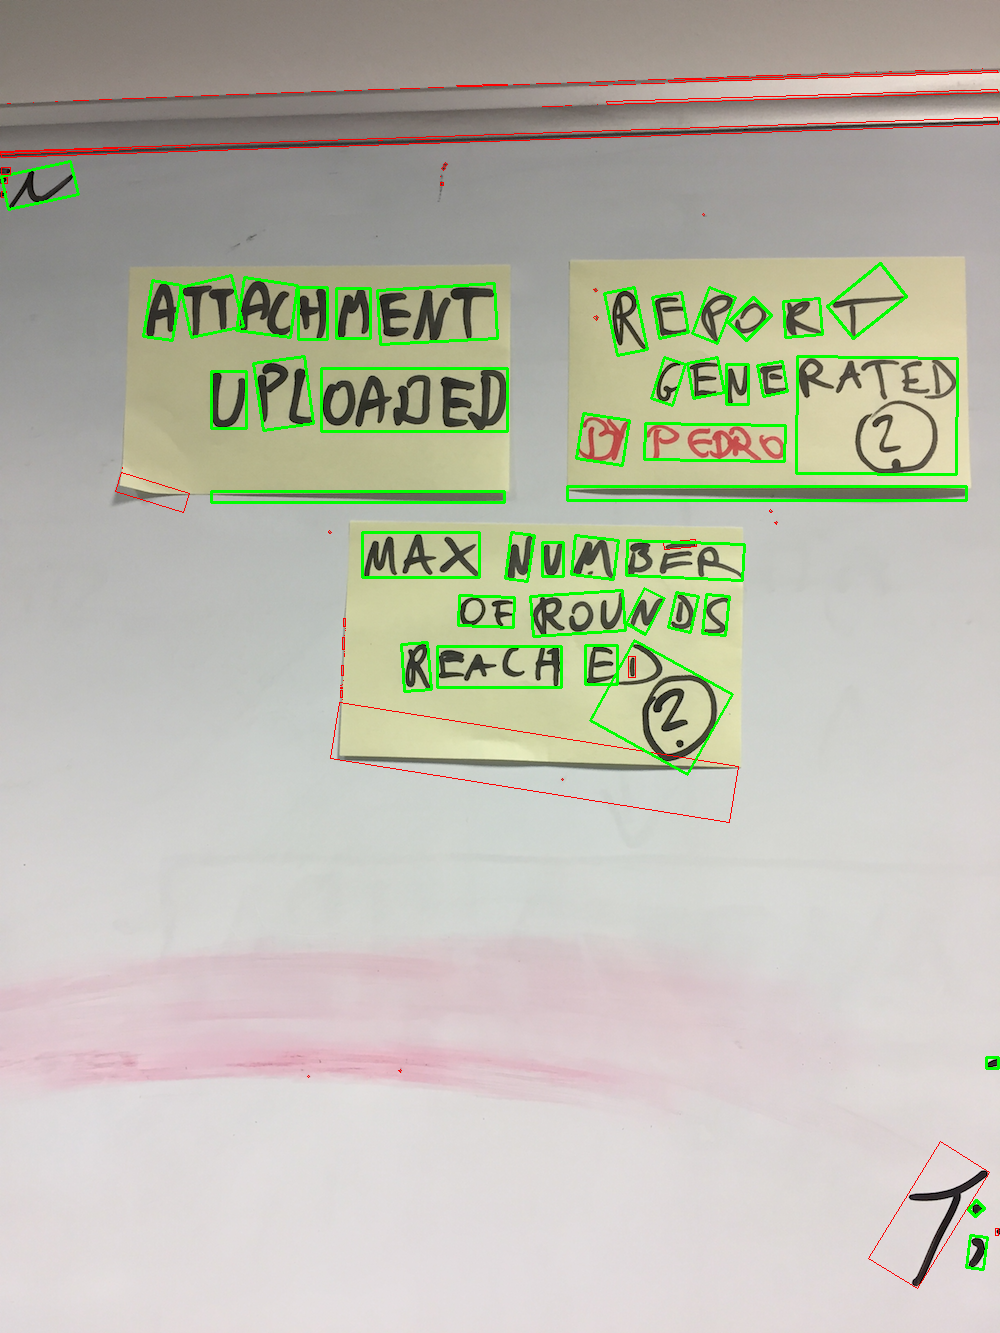 ATTACHMENT
UPLOADED
REPORT
GENERATED
BY PEDRO ?
MAX NUMBER
OF ROUNDS
REACHED
?